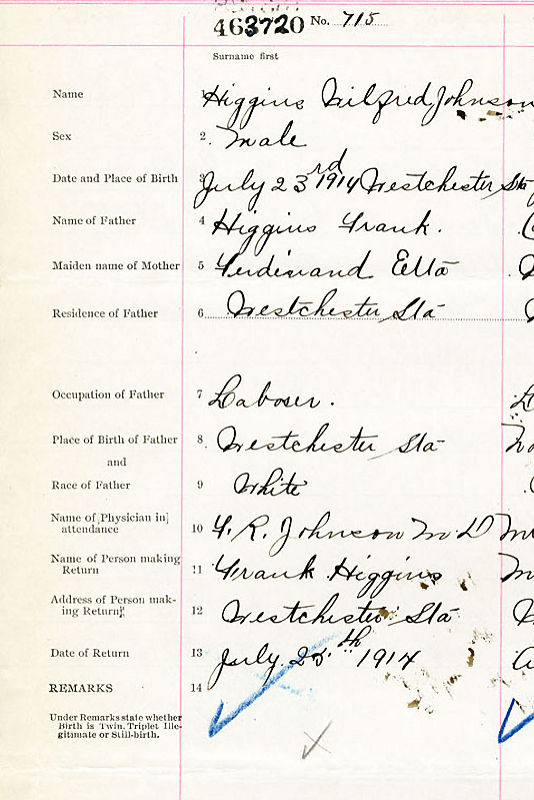 463720 No. 715
Surname first
Name 1 Higgins Wilfred Johnson
Sex 2. Male
Date and Place of Birth 3 July 23rd 1914 Westchester Sta
Name of Father 4 Higgins Frank.
Maiden name of Mother 5 Ferdinand Etta
Residence of Father 6 Westchester Sta
Occupation of Father 7 Laborer.
Place of Birth of Father 8 Westchester Sta
and
Race of Father 9 White
Name of Physician in
attendance 10 F. R. Johnson M.D
Name of Person making
Return 11 Frank Higgins
Address of Person mak-
ing Return 12 Westchester Sta
Date of Return 13 July 25th 1914
REMARKS 14
Under Remarks state whether
Birth is Twin. Triplet Ille-
gitimate or Still-birth.